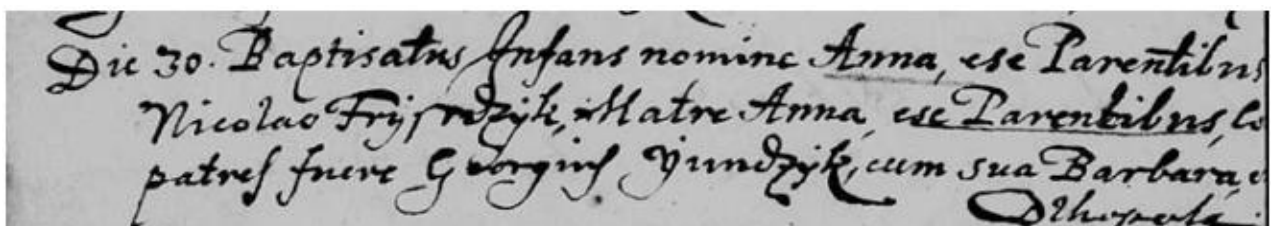 Die 30. Baptisatus Infans nomine Anna, ese Parentibus
Nicolao Matre Anna, ese Parentibus, Co
patres fuere Georgius Yundzyk, cum sua Barbara,